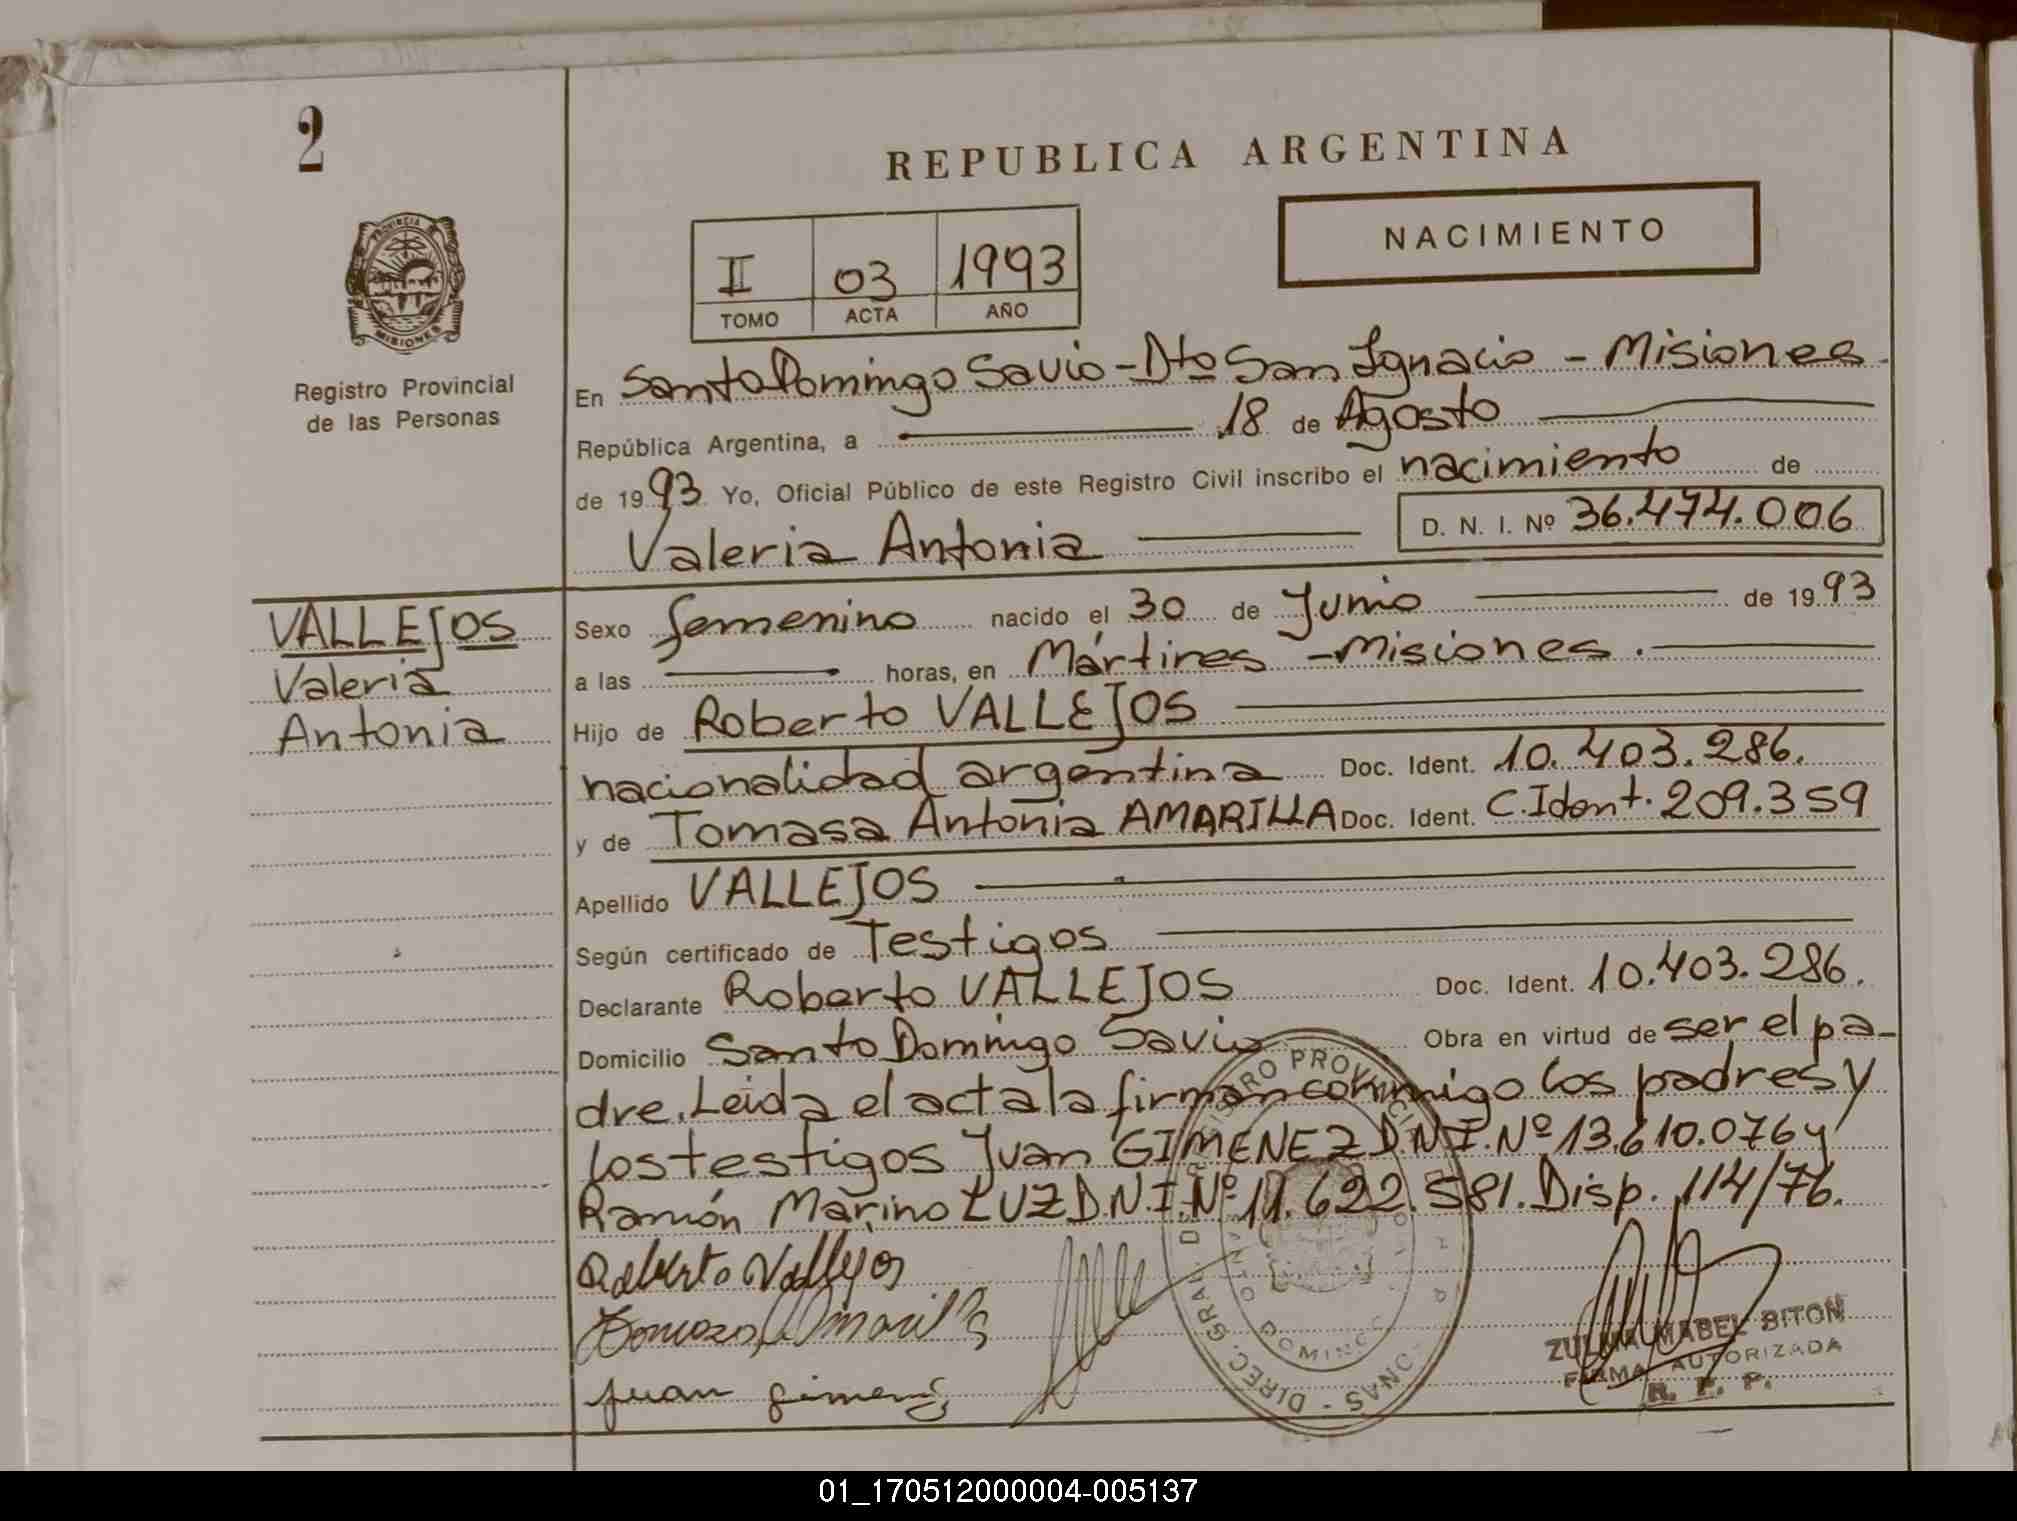 2
REPUBLICA ARGENTINA
NACIMIENTO
II 03 1993
TOMO ACTA AÑO
PROVINCIA
MISIONES
Registro Provincial
de las Personas
En Santo Domingo Savio - Dto San Ignacio - Misiones
República Argentina, a 18 de Agosto
de 1993 Yo, Oficial Público de este Registro Civil inscribo el nacimiento de
Valeria Antonia D. N. I. Nº 36.474.006
VALLEJOS
Valeria
Antonia
Sexo femenino nacido el 30 de Junio de 1993
a las horas, en Mártires - Misiones.
Hijo de Roberto VALLEJOS
nacionalidad argentina Doc. Ident. 10.403.286.
y de Tomasa Antonia AMARILLA Doc. Ident. C.Ident. 209.359
Apellido VALLEJOS
Según certificado de Testigos
Declarante Roberto VALLEJOS Doc. Ident. 10.403.286.
Domicilio Santo Domingo Savio Obra en virtud de ser el pa-
dre. Leida el acta la firman conmigo los padres y
los testigos Juan GIMENEZ D.N.I. Nº 13.610.076 y
Ramón Marino LUZ D.N.I. Nº 11.622.581. Disp. 114/76.
Roberto Vallejos
Tomasa Amarilla
Juan Gimenez
ZULMA MABEL BITON
FIRMA AUTORIZADA
R. P. P.
01_170512000004-005137